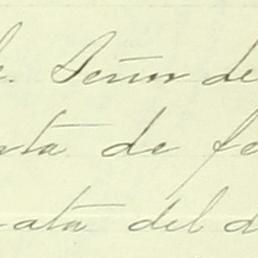 e. Señor de
rta de fe
ata del d